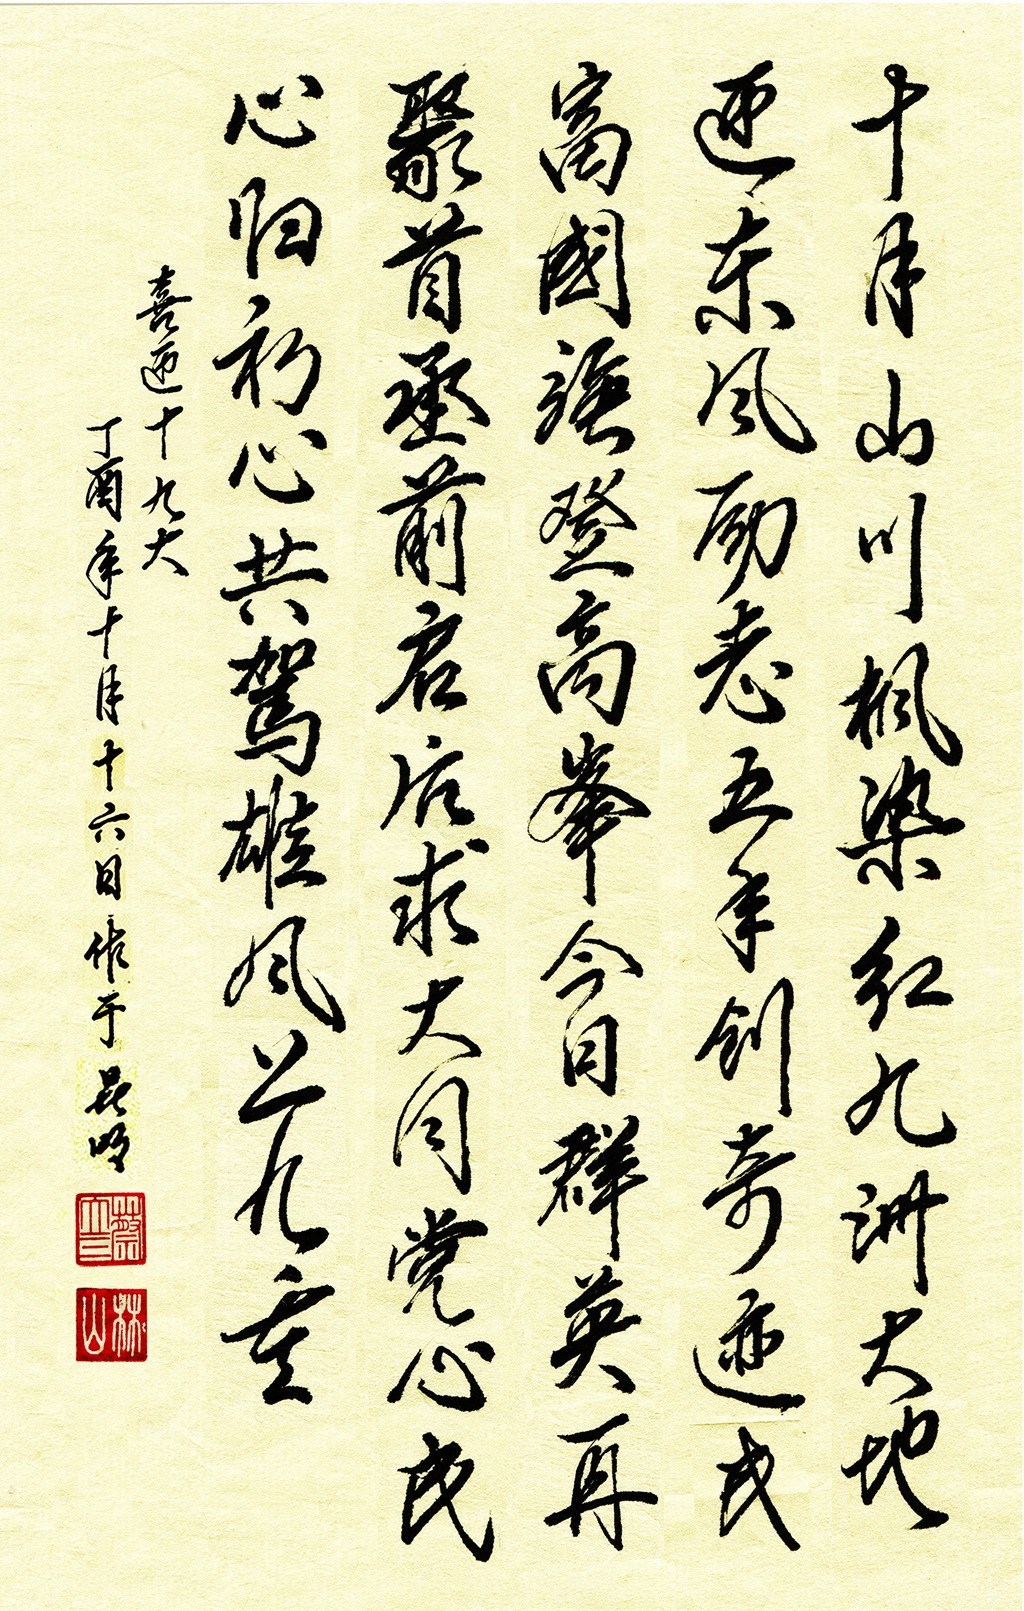 十月山川枫染红九洲大地
迎东风励志五年创奇迹民
富國强登高峰今日群英再
聚首承前启后求大同党心民
心归初心共驾雄风上九重
喜迎十九大
丁酉年十月十六日作于昆明
蔡六三
林山